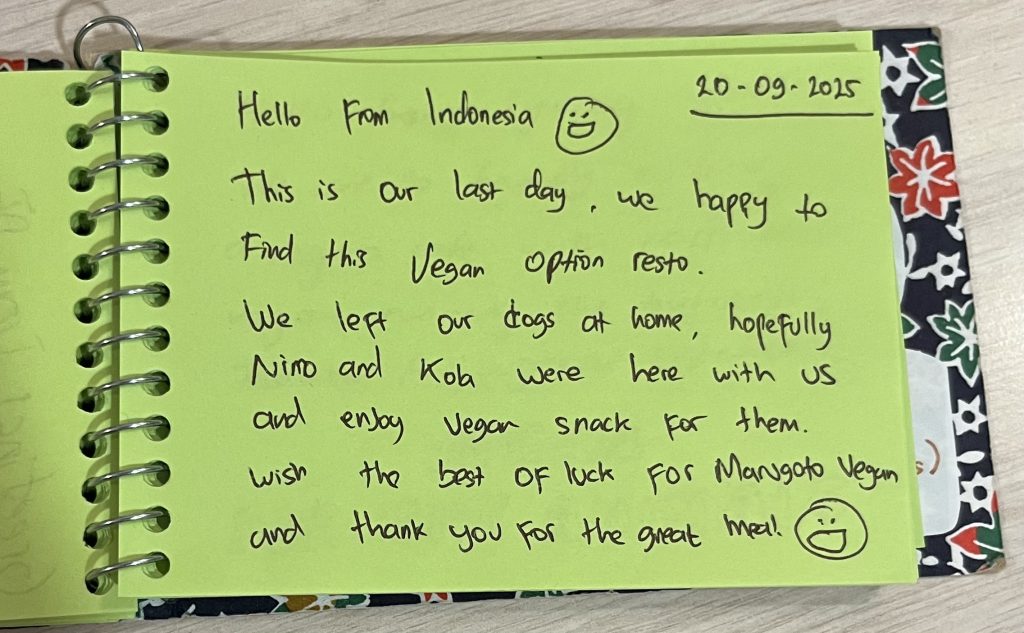 20-09-2025
Hello From Indonesia
This is our last day, we happy to
Find this Vegan option resto.
We left our dogs at home, hopefully
Nino and Kola were here with us
and enjoy vegan snack for them.
wish the best of luck for Marugoto Vegan
and thank you for the great meal.